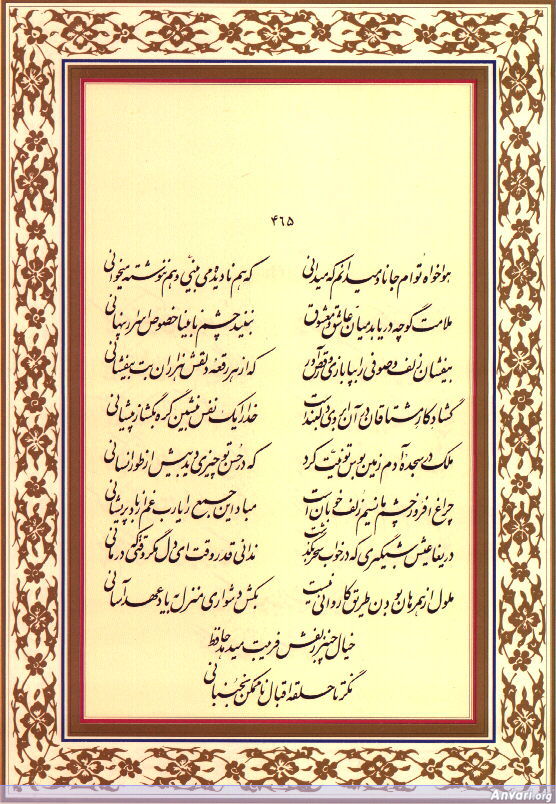 ۴۶۵
هواخواه توام جانا و میدانم که میدانی که هم نادیده می بینی و هم ننوشته میخوانی
ملامت گو چه دریابد میان عاشق و معشوق نبیند چشم نابینا خصوص اسرار پنهانی
بیفشان زلف و صوفی را بپا بازی و رقص آور که از هر رقعه دلقش هزاران بت بیفشانی
گشاد کار مشتاقان در آن ابروی دلبندست خدا را یک نفس بنشین گره بگشا ز پیشانی
ملک در سجده آدم زمین بوس تو نیت کرد که در حسن تو چیزی دید بیش از طور انسانی
چراغ افروز چشم ما نسیم زلف خوبان است مباد این جمع را یارب غم از باد پریشانی
دریغا عیش شبگیری که در خواب سحر بگذشت ندانی قدر وقت ای دل مگر وقتی که درمانی
ملول از همرهان بودن طریق کاروانی نیست بکش دشواری منزل بیاد عهد آسانی
خیال چنبر زلفش فریبت میدهد حافظ
نگر تا حلقه اقبال ناممکن نجنبانی
Anvari.org